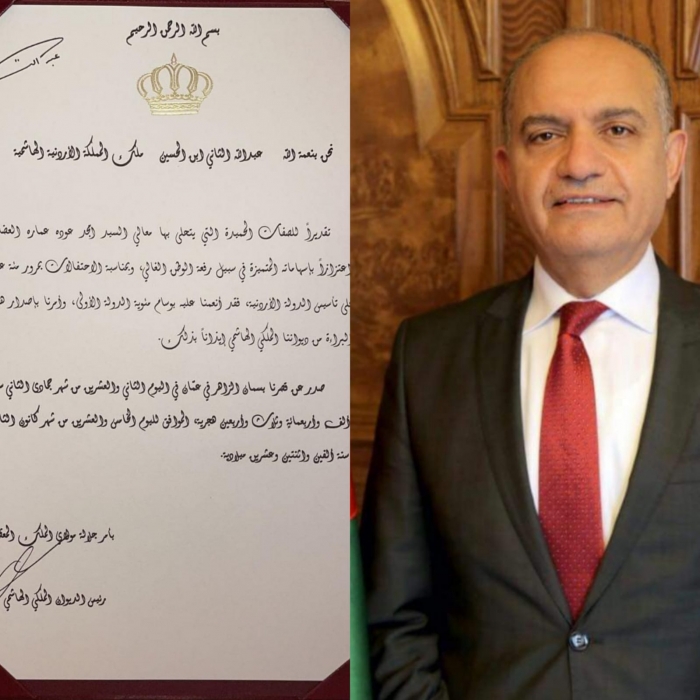 بسم الله الرحمن الرحيم
نحن بنعمة الله عبدالله الثاني ابن الحسين ملك المملكة الاردنية الهاشمية
تقديراً للصفات الحميدة التي يتحلى بها معالي السيد امجد عوده عماره العض
اعتزازاً بإسهاماته المتميزة في سبيل رفعة الوطن الغالي، وبمناسبة الاحتفالات بمرور مئة ع
لى تأسيس الدولة الاردنية، فقد أنعمنا عليه بوسام مئوية الدولة الأولى، وأمرنا بإصدار ه
البراءة من ديواننا الملكي الهاشمي إيذاناً بذلك.
صدر عن قصرنا بسمان الزاهر في عمّان في اليوم الثاني والعشرين من شهر جمادى الثاني س
ألف وأربعمائة وثلاث وأربعين هجرية الموافق لليوم الخامس والعشرين من شهر كانون الثا
سنة ألفين واثنتين وعشرين ميلادية.
بامر جلالة مولاي الملك المعظ
رئيس الديوان الملكي الهاشمي